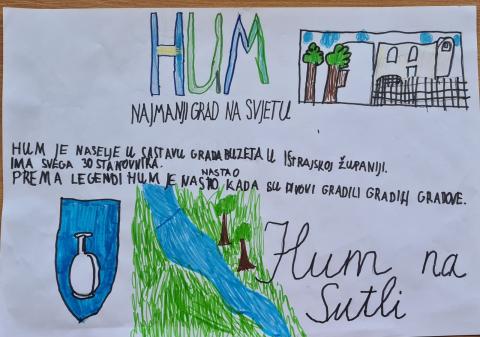 HUM
NAJMANJI GRAD NA SVJETU
HUM JE NASELJE U SASTAVU GRADA BUZETA U IŠTRAJSKOJ ŽUPANIJI.
IMA SVEGA 30 STANOVNIKA.
NASTAO
PREMA LEGENDI HUM JE NASTO KADA SU DIVOVI GRADILI GRADILI GRADOVE.
Hum na
Sutli